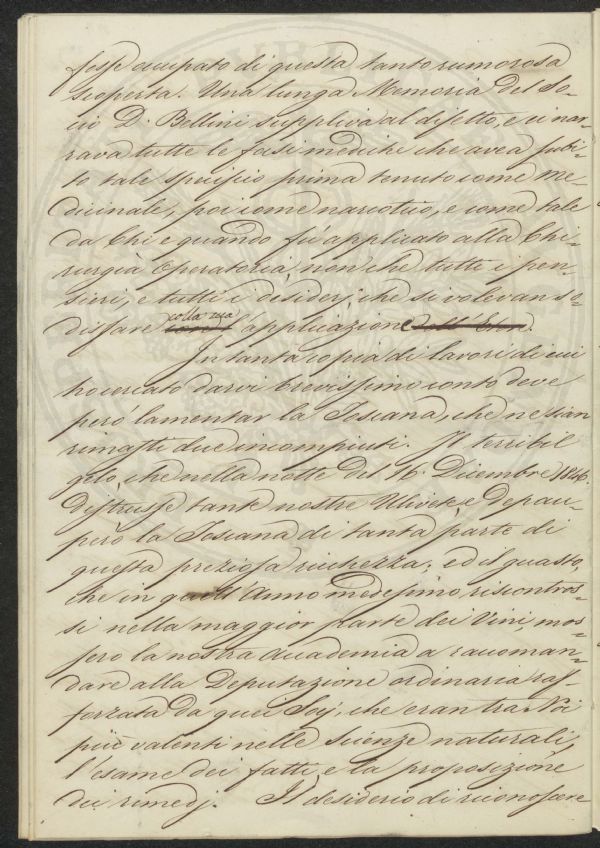 fosse occupato di questa tanto rumorosa
scoperta. Una lunga Memoria del So-
cio D. Bellini suppliva al difetto, e ci nar-
rava tutte le fasi mediche che avea subi-
to tale specifico prima tenuto come me-
dicinale, poi come narcotico, e come tale
da chi e quando fu applicato alla Chi-
rurgia Operatoria, non che tutti i pen-
sieri, e tutti i desiderj, che si volevan so-
disfare colla sua applicazione.
In tanta copia di lavori di cui
ho cercato darvi brevissimo conto deve
però lamentar la Toscana, che ne sian
rimasti due incompiuti. Il terribil
gelo, che nella notte del 16. Dicembre 1846.
distrusse tante nostre Ulivete, e depau-
però la Toscana di tanta parte di
questa preziosa ricchezza; ed il guasto,
che in quell'Anno medesimo, riscontros-
si nella maggior parte dei Vini, mos-
sero la nostra Accademia a raccoman-
dare alla Deputazione ordinaria raf-
forzata da quei Socj, che eran tra Noi
più valenti nelle scienze naturali,
l'esame dei fatti, e la proposizione
dei rimedj. Il desiderio di riconoscere